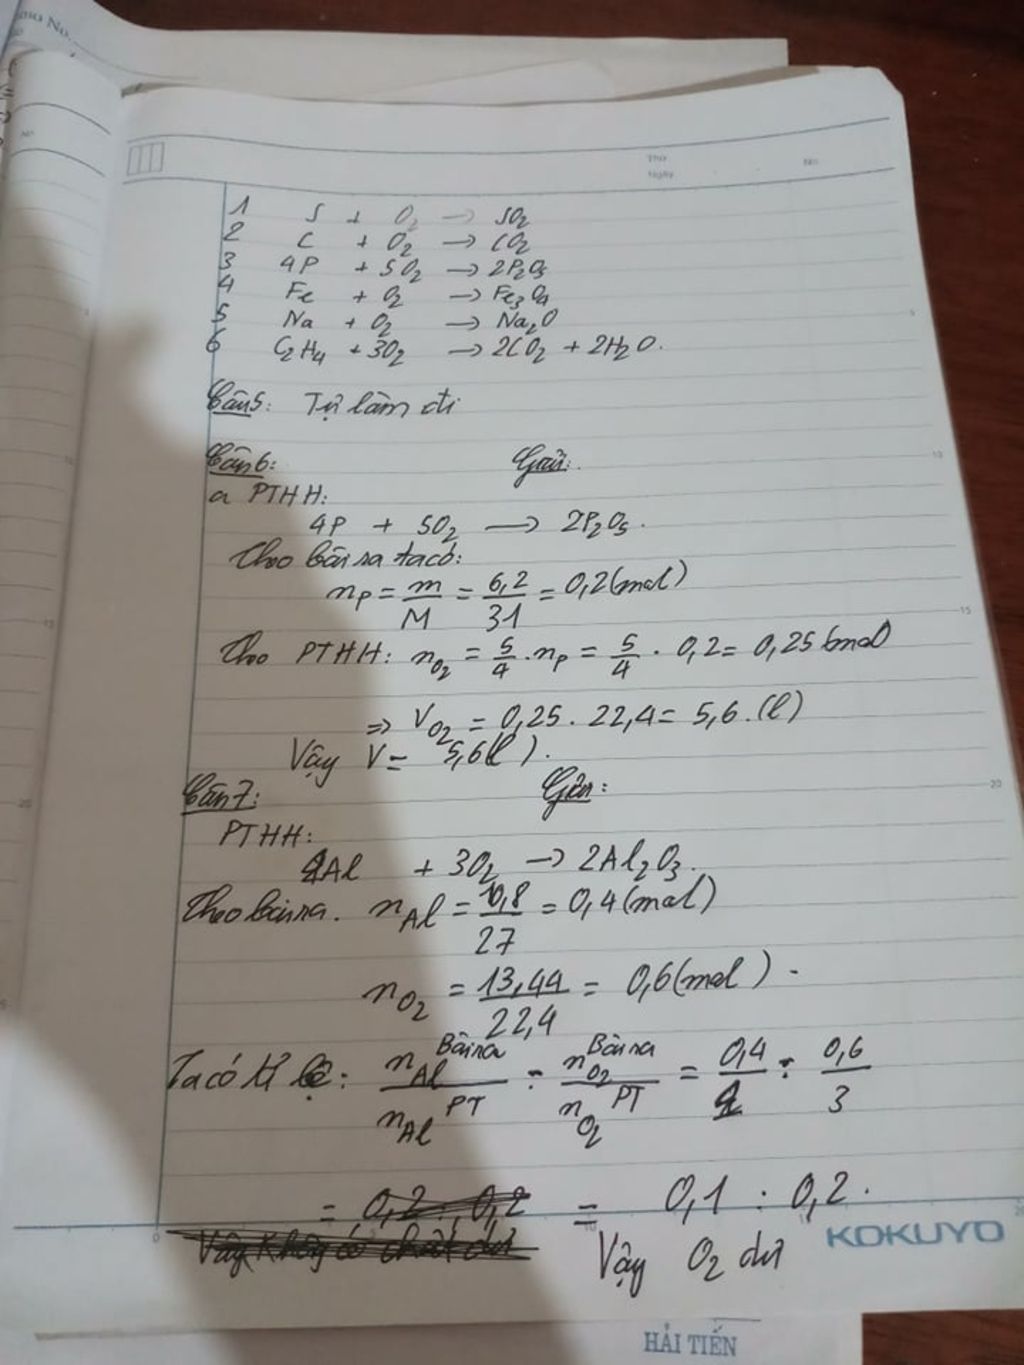 Thứ
No.
Ngày
1 S + O2 → SO2
2 C + O2 → CO2
3 4P + 5O2 → 2P2O5
4 Fe + O2 → Fe3O4
5 Na + O2 → Na2O
6 C2H4 + 3O2 → 2CO2 + 2H2O.
Câu5: Tự làm đi
Câu6: Giải:
a PTHH:
4P + 5O2 → 2P2O5.
Theo bài ra ta có:
nP = m/M = 6,2/31 = 0,2(mol)
Theo PTHH: nO2 = 5/4 . nP = 5/4 . 0,2 = 0,25(mol)
=> VO2 = 0,25 . 22,4 = 5,6.(l)
Vậy V = 5,6(l).
Câu7: Giải:
PTHH:
4Al + 3O2 → 2Al2O3.
Theo bài ra. nAl = 10,8/27 = 0,4(mol)
nO2 = 13,44/22,4 = 0,6(mol).
Ta có tỉ lệ: nAl Bài ra/nAl PT : nO2 Bài ra/nO2 PT = 0,4/4 : 0,6/3
= 0,2 : 0,2 = 0,1 : 0,2.
Vậy không có chất dư Vậy O2 dư
KOKUYO
HẢI TIẾN